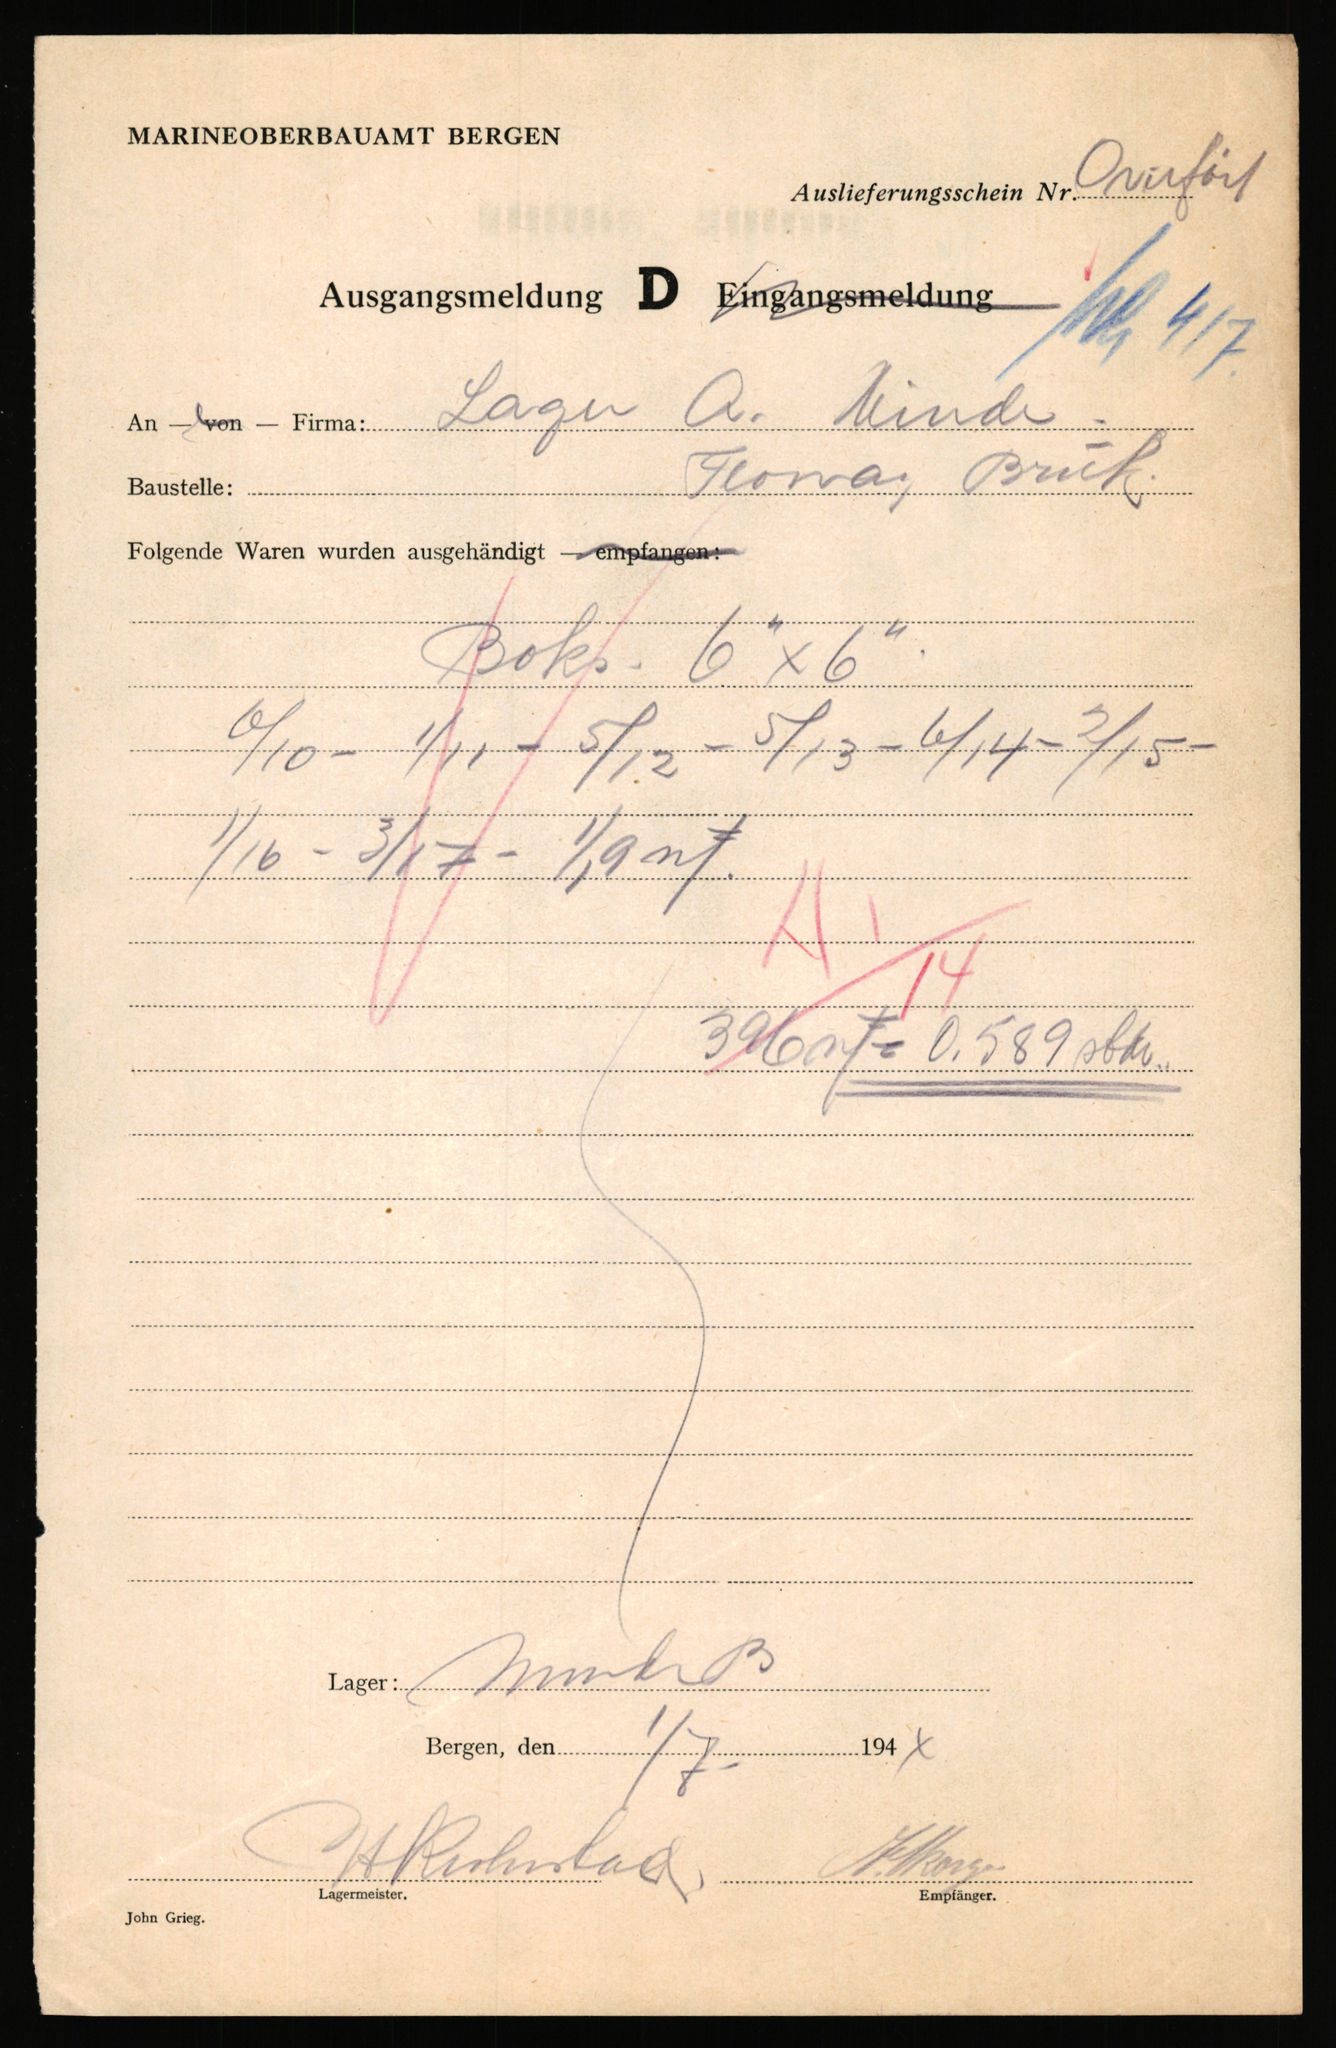 MARINEOBERBAUAMT BERGEN
Auslieferungsschein Nr. Overført
Ausgangsmeldung D Eingangsmeldung
4/7.
An — von — Firma: Lager A. Minde.
Baustelle:
Folgende Waren wurden ausgehändigt — empfangen:
Boks. 6" x 6".
6/10 - 1/11 - 5/12 - 5/13 - 6/14 - 2/15 -
1/16 - 3/17 - 1/19
A 1
14
396 = 0.589 stdr.
Lager: Minde B
Bergen, den 1/7- 194
Lagermeister.
Empfänger.
John Grieg.